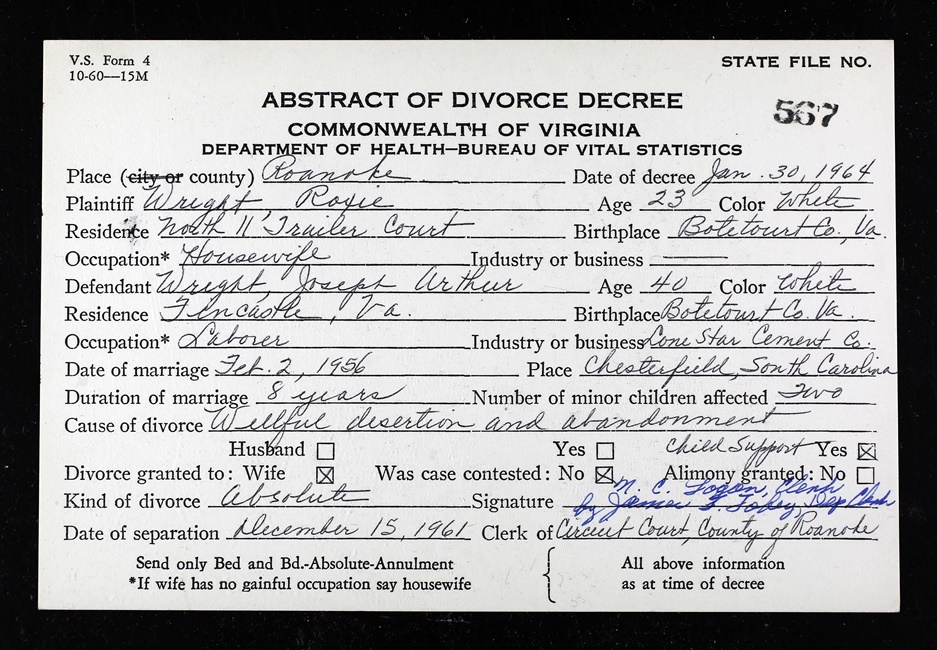 V.S. Form 4
10-60—15M
STATE FILE NO.
567
ABSTRACT OF DIVORCE DECREE
COMMONWEALTH OF VIRGINIA
DEPARTMENT OF HEALTH—BUREAU OF VITAL STATISTICS
Place (city or county) Roanoke Date of decree Jan. 30, 1964
Plaintiff Wright, Roxie Age 23 Color White
Residence North 11 Trailer Court Birthplace Botetourt Co., Va.
Occupation* Housewife Industry or business ———
Defendant Wright, Joseph Arthur Age 40 Color White
Residence Fincastle, Va. Birthplace Botetourt Co. Va.
Occupation* Laborer Industry or business Lone Star Cement Co.
Date of marriage Feb. 2, 1956 Place Chesterfield, South Carolina
Duration of marriage 8 years Number of minor children affected Two
Cause of divorce Willful desertion and abandonment
Husband Yes Child Support Yes
Divorce granted to: Wife Was case contested: No Alimony granted: No
N. C. Logan, Clerk
Kind of divorce Absolute Signature by James Dep Clerk
Date of separation December 15, 1961 Clerk of Circuit Court, County of Roanoke
Send only Bed and Bd.-Absolute-Annulment All above information
*If wife has no gainful occupation say housewife as at time of decree